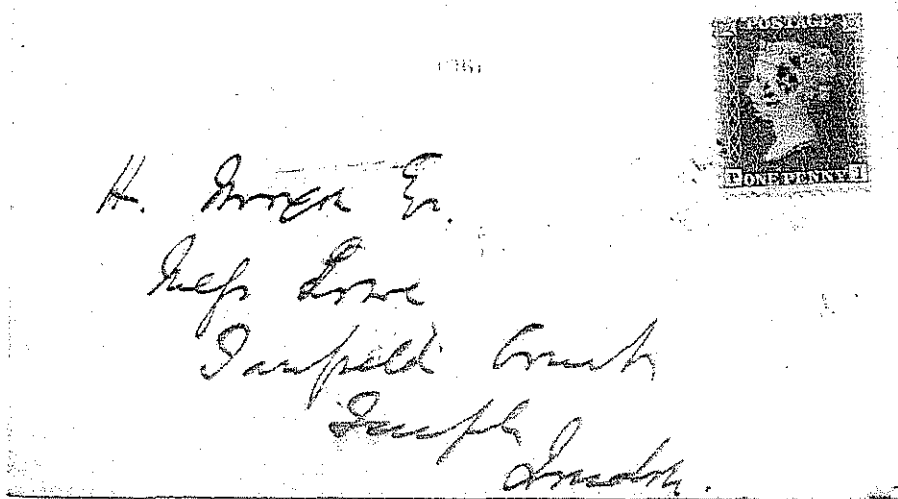 POSTAGE
P ONE PENNY I
H. Esq.
Messrs Lowe
Tanfield Court
Temple
London.